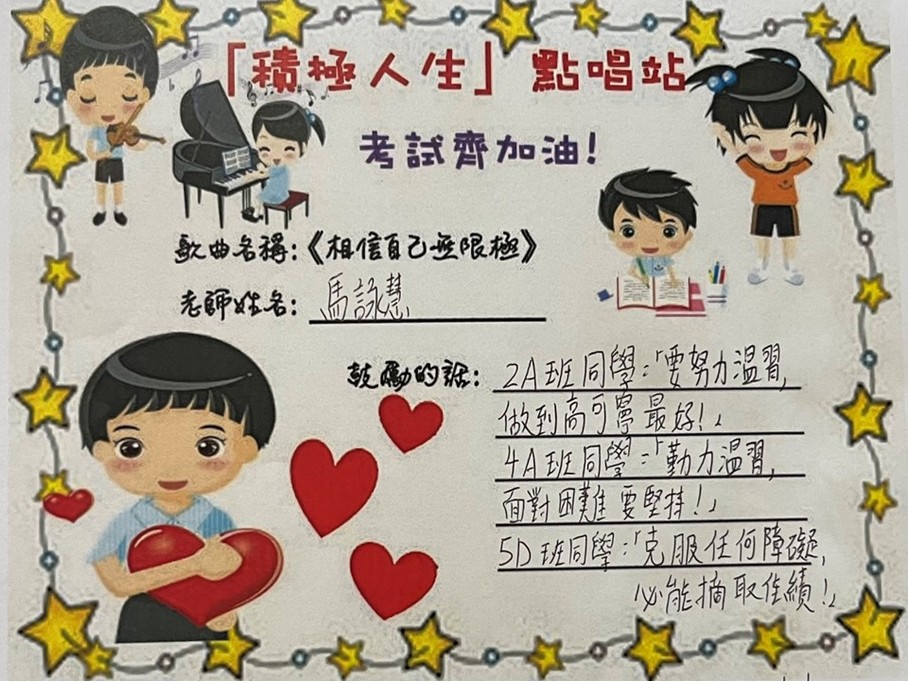 「積極人生」點唱站
考試齊加油!
歌曲名稱:《相信自己無限極》
老師姓名: 馬詠慧
鼓勵的話: 2A班同學:「要努力溫習,
做到高可寧最好!」
4A班同學:「勤力溫習,
面對困難要堅持!」
5D班同學:「克服任何障礙,
必能摘取佳績!」